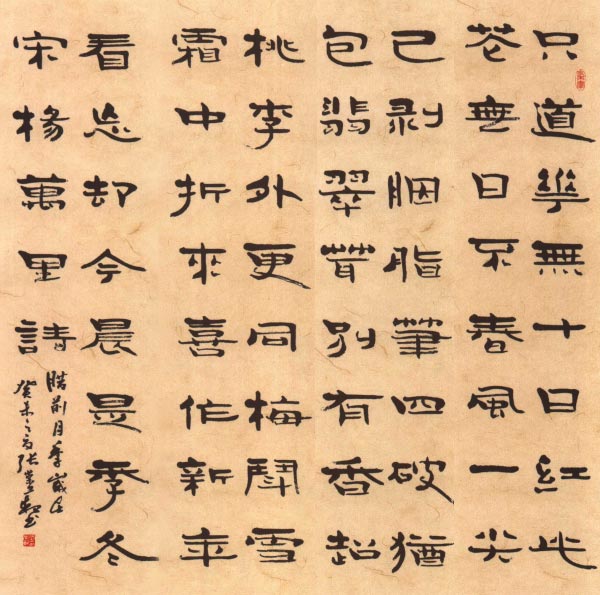 只道華無十日紅此
花無日不春風一尖
已剥胭脂筆四破猶
包翡翠茸別有香超
桃李外更同梅鬥雪
霜中折來喜作新年
看忘却今晨是季冬
宋楊萬里詩
腊前月季歲在
癸未之張書